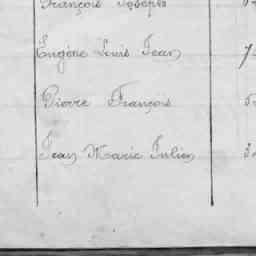 François Joseph
Eugène Louis Jean
Pierre François
Jean Marie Julien